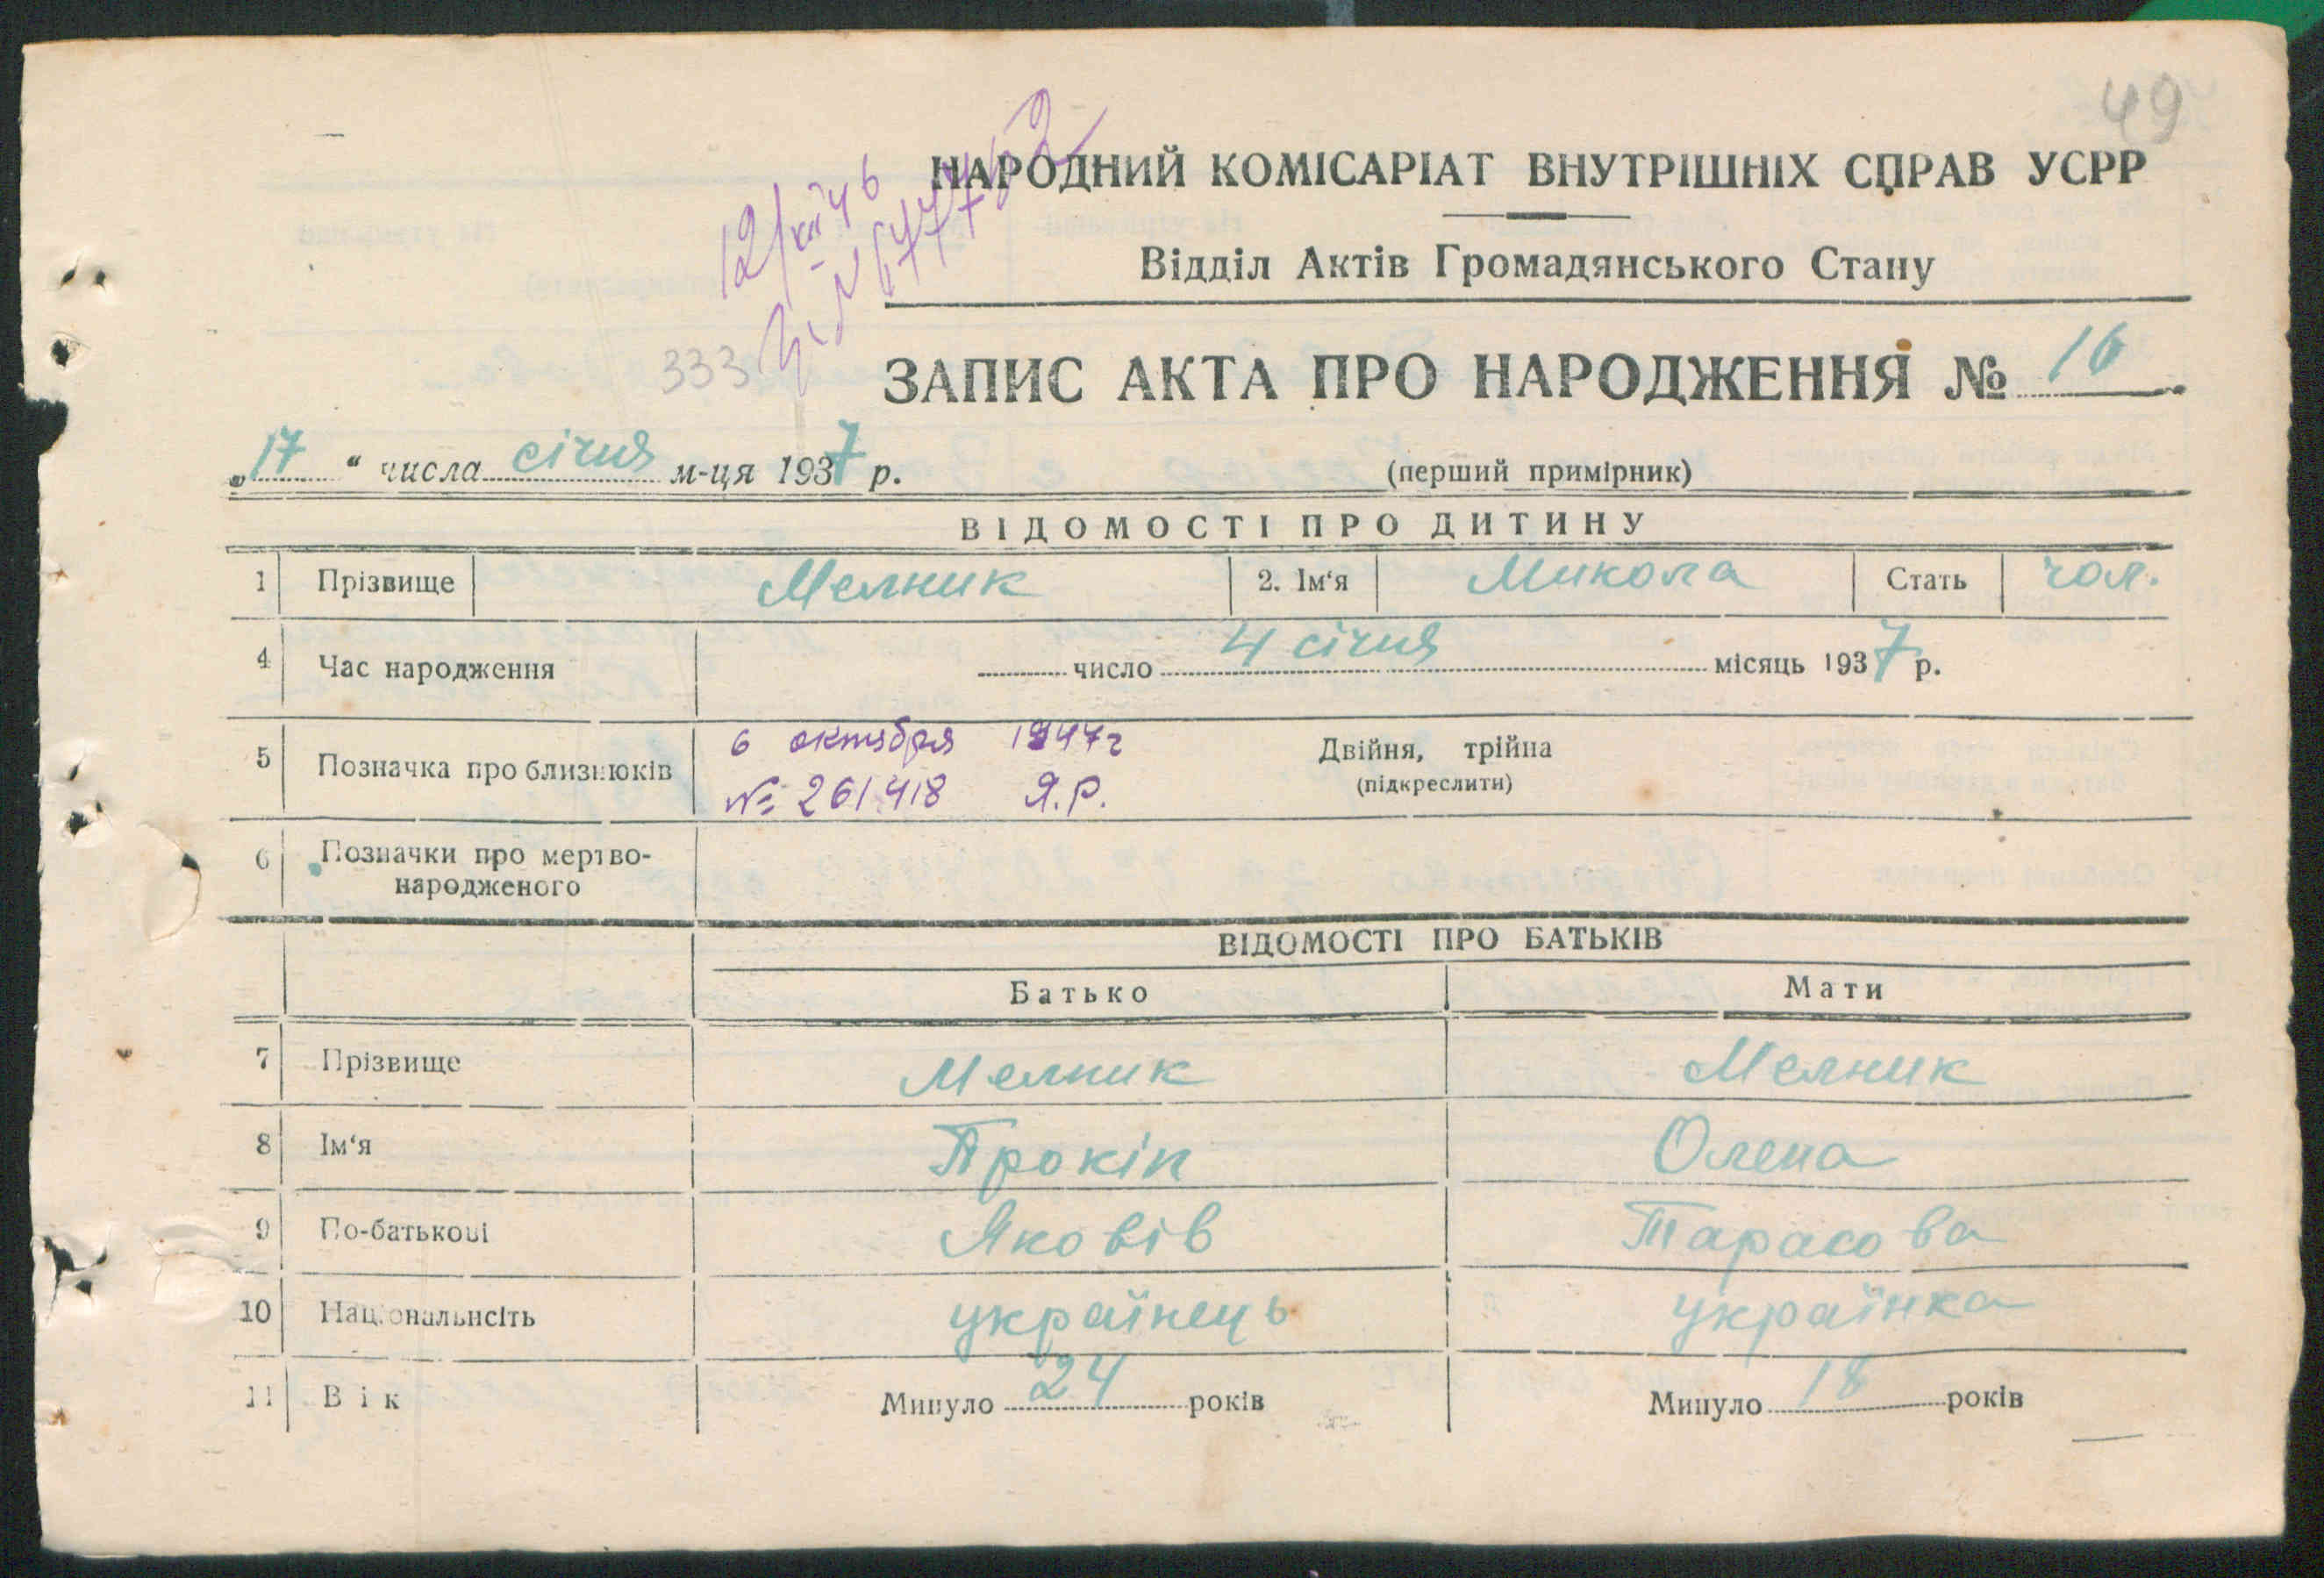 49
НАРОДНИЙ КОМІСАРІАТ ВНУТРІШНІХ СПРАВ УСРР
Відділ Актів Громадянського Стану
12/XII 46
333
ЗАПИС АКТА ПРО НАРОДЖЕННЯ № 16
„17“ числа січня м-ця 1937 р. (перший примірник)
ВІДОМОСТІ ПРО ДИТИНУ
1 Прізвище Мелник 2. Ім‘я Микола Стать чол.
4 Час народження число 4 січня місяць 1937 р.
5 Позначка про близнюків 6 октября 1947 г Двійня, трійна
№ 261418 Я.Р. (підкреслити)
6 Позначки про мертво-
народженого
ВІДОМОСТІ ПРО БАТЬКІВ
Батько Мати
7 Прізвище Мелник Мелник
8 Ім‘я Прокіп Олена
9 По-батькові Яковів Тарасова
10 Національнсіть українець українка
11 Вік Минуло 24 років Минуло 18 років